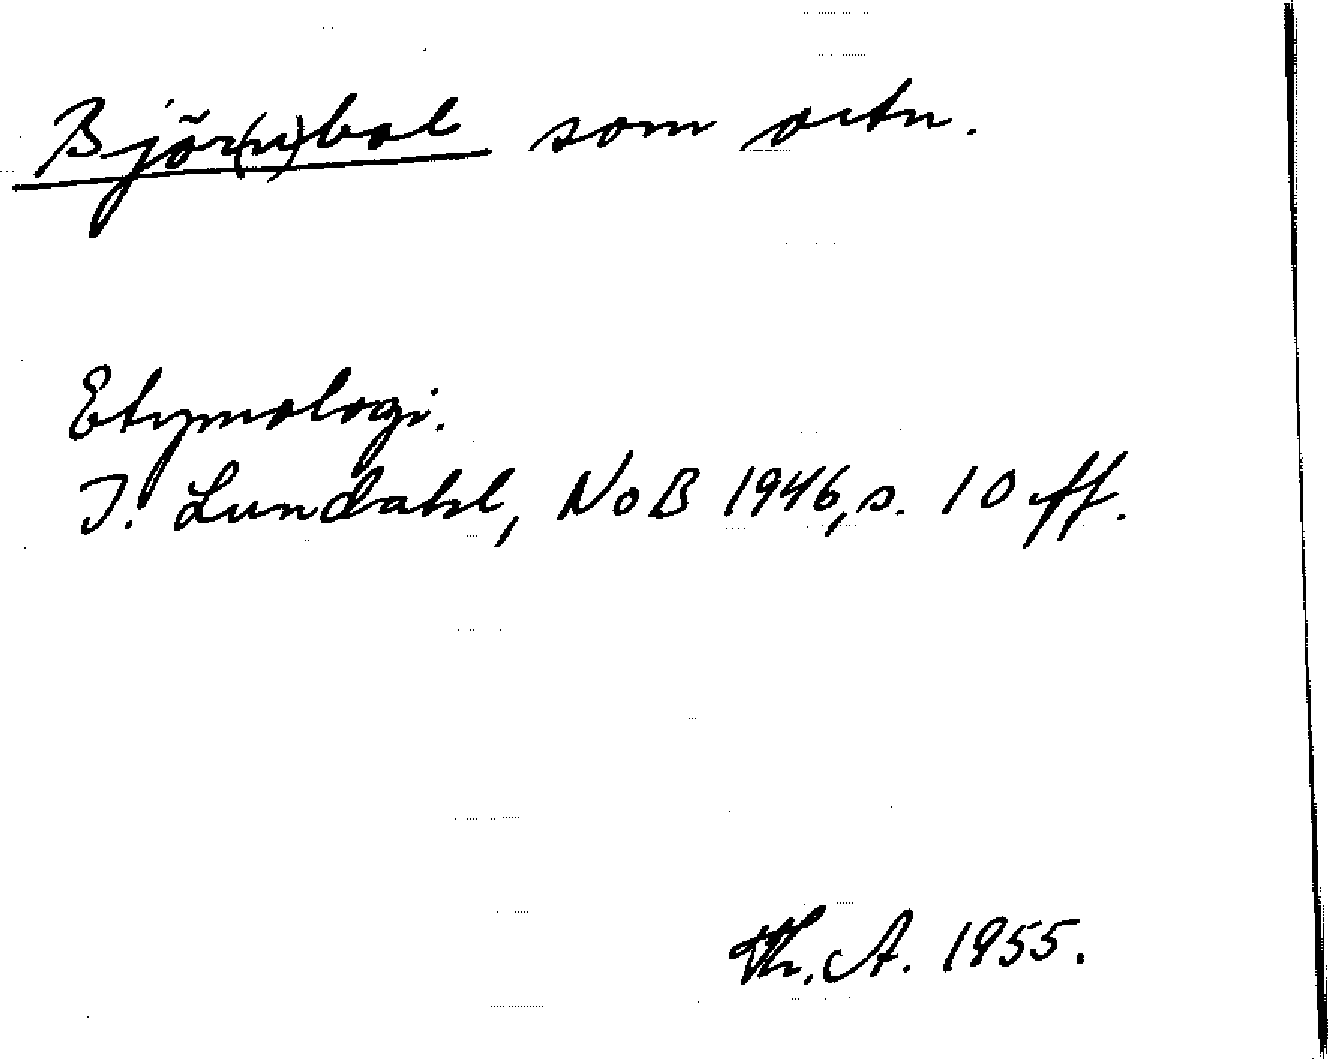 Björ(n)bol som ortn.
Etymologi.
I. Lundahl, NoB 1946, s. 10 ff.
Th. A. 1955.